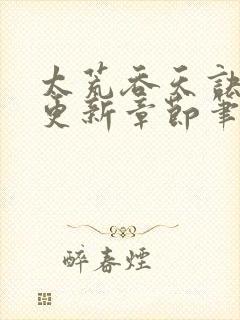 太荒吞天诀
更新章节笔
醉春烟